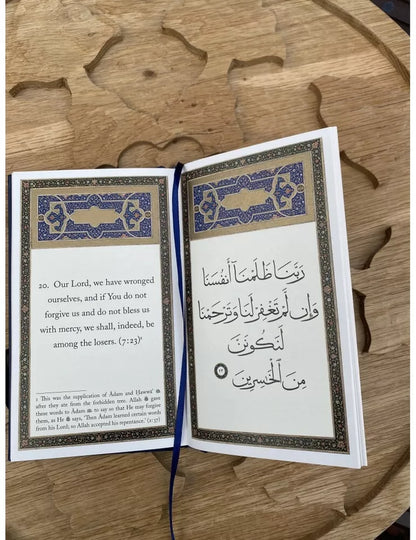 20. Our Lord, we have wronged
ourselves, and if You do not
forgive us and do not bless us
with mercy, we shall, indeed, be
among the losers. (7:23)¹
1 This was the supplication of Ādam and Ḥawwāʾ
after they ate from the forbidden tree. Allah gave
these words to Ādam to say so that He may forgive
them, as He says, 'Then Ādam learned certain words
from his Lord; so Allah accepted his repentance.' (2:37)
رَبَّنَا ظَلَمْنَآ أَنفُسَنَا
وَإِن لَّمْ تَغْفِرْ لَنَا وَتَرْحَمْنَا
لَنَكُونَنَّ
مِنَ ٱلْخَٰسِرِينَ ٢٣